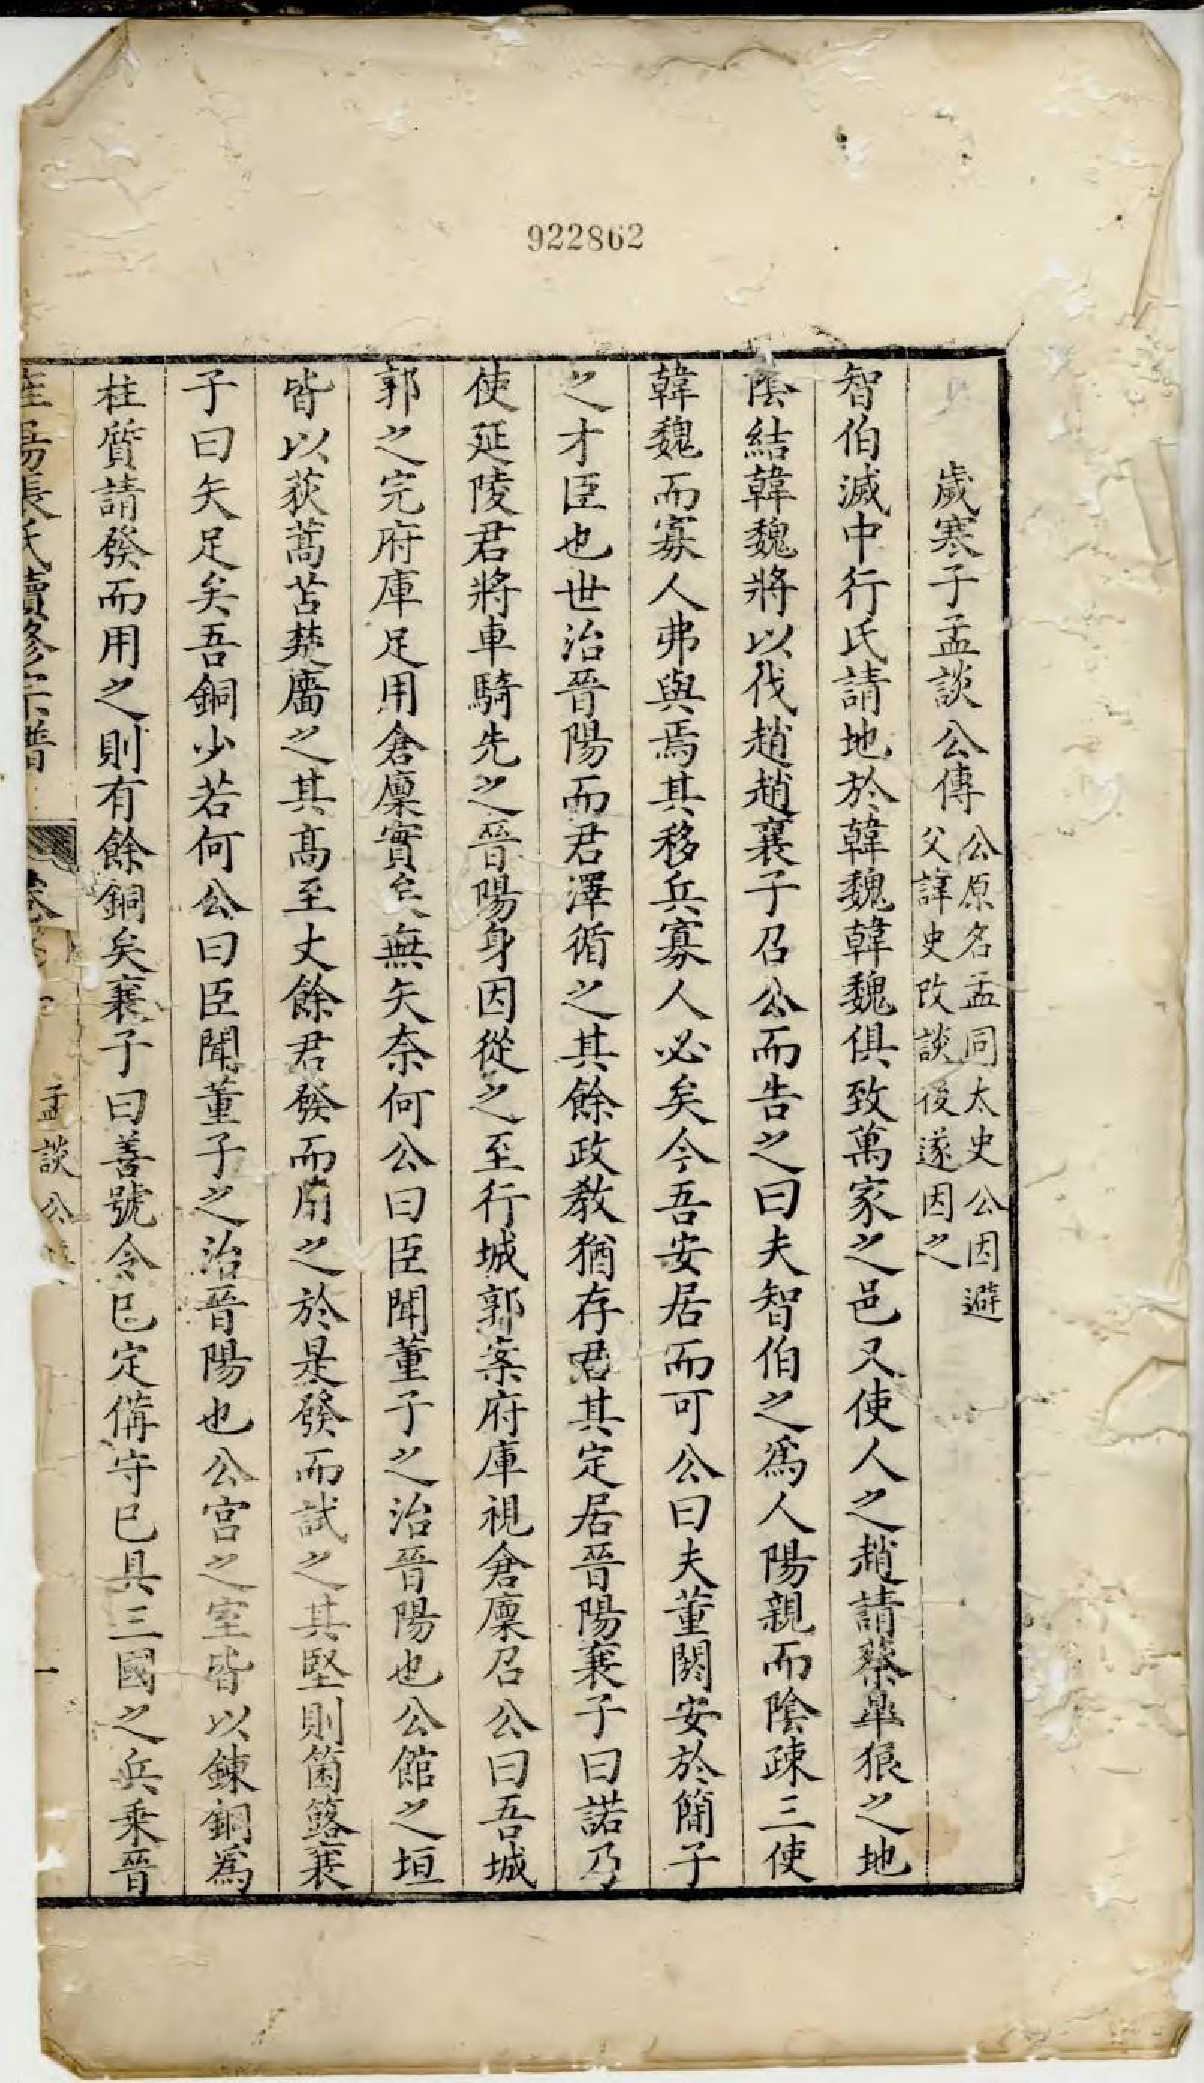 922862
歲寒子孟談公傳
公原名孟同太史公因避
父諱史改談後遂因之
智伯滅中行氏請地於韓魏韓魏俱致萬家之邑又使人之趙請蔡皐狼之地
陰結韓魏將以伐趙趙襄子召公而告之曰夫智伯之爲人陽親而陰疎三使
韓魏而寡人弗與焉其移兵寡人必矣今吾安居而可公曰夫董閼安於簡子
之才臣也世治晉陽而君澤循之其餘政教猶存君其定居晉陽襄子曰諾乃
使延陵君將車騎先之晉陽身因從之至行城郭案府庫視倉廩召公曰吾城
郭之完府庫足用倉廩實矣無矢奈何公曰臣聞董子之治晉陽也公館之垣
皆以荻蒿苫楚廧之其高至丈餘君發而用之於是發而試之其堅則箘簬襄
子曰矢足矣吾銅少若何公曰臣聞董子之治晉陽也公宮之室皆以鍊銅爲
柱質請發而用之則有餘銅矣襄子曰善號令已定備守已具三國之兵乘晉
張氏續修宗譜 卷 孟談公 一